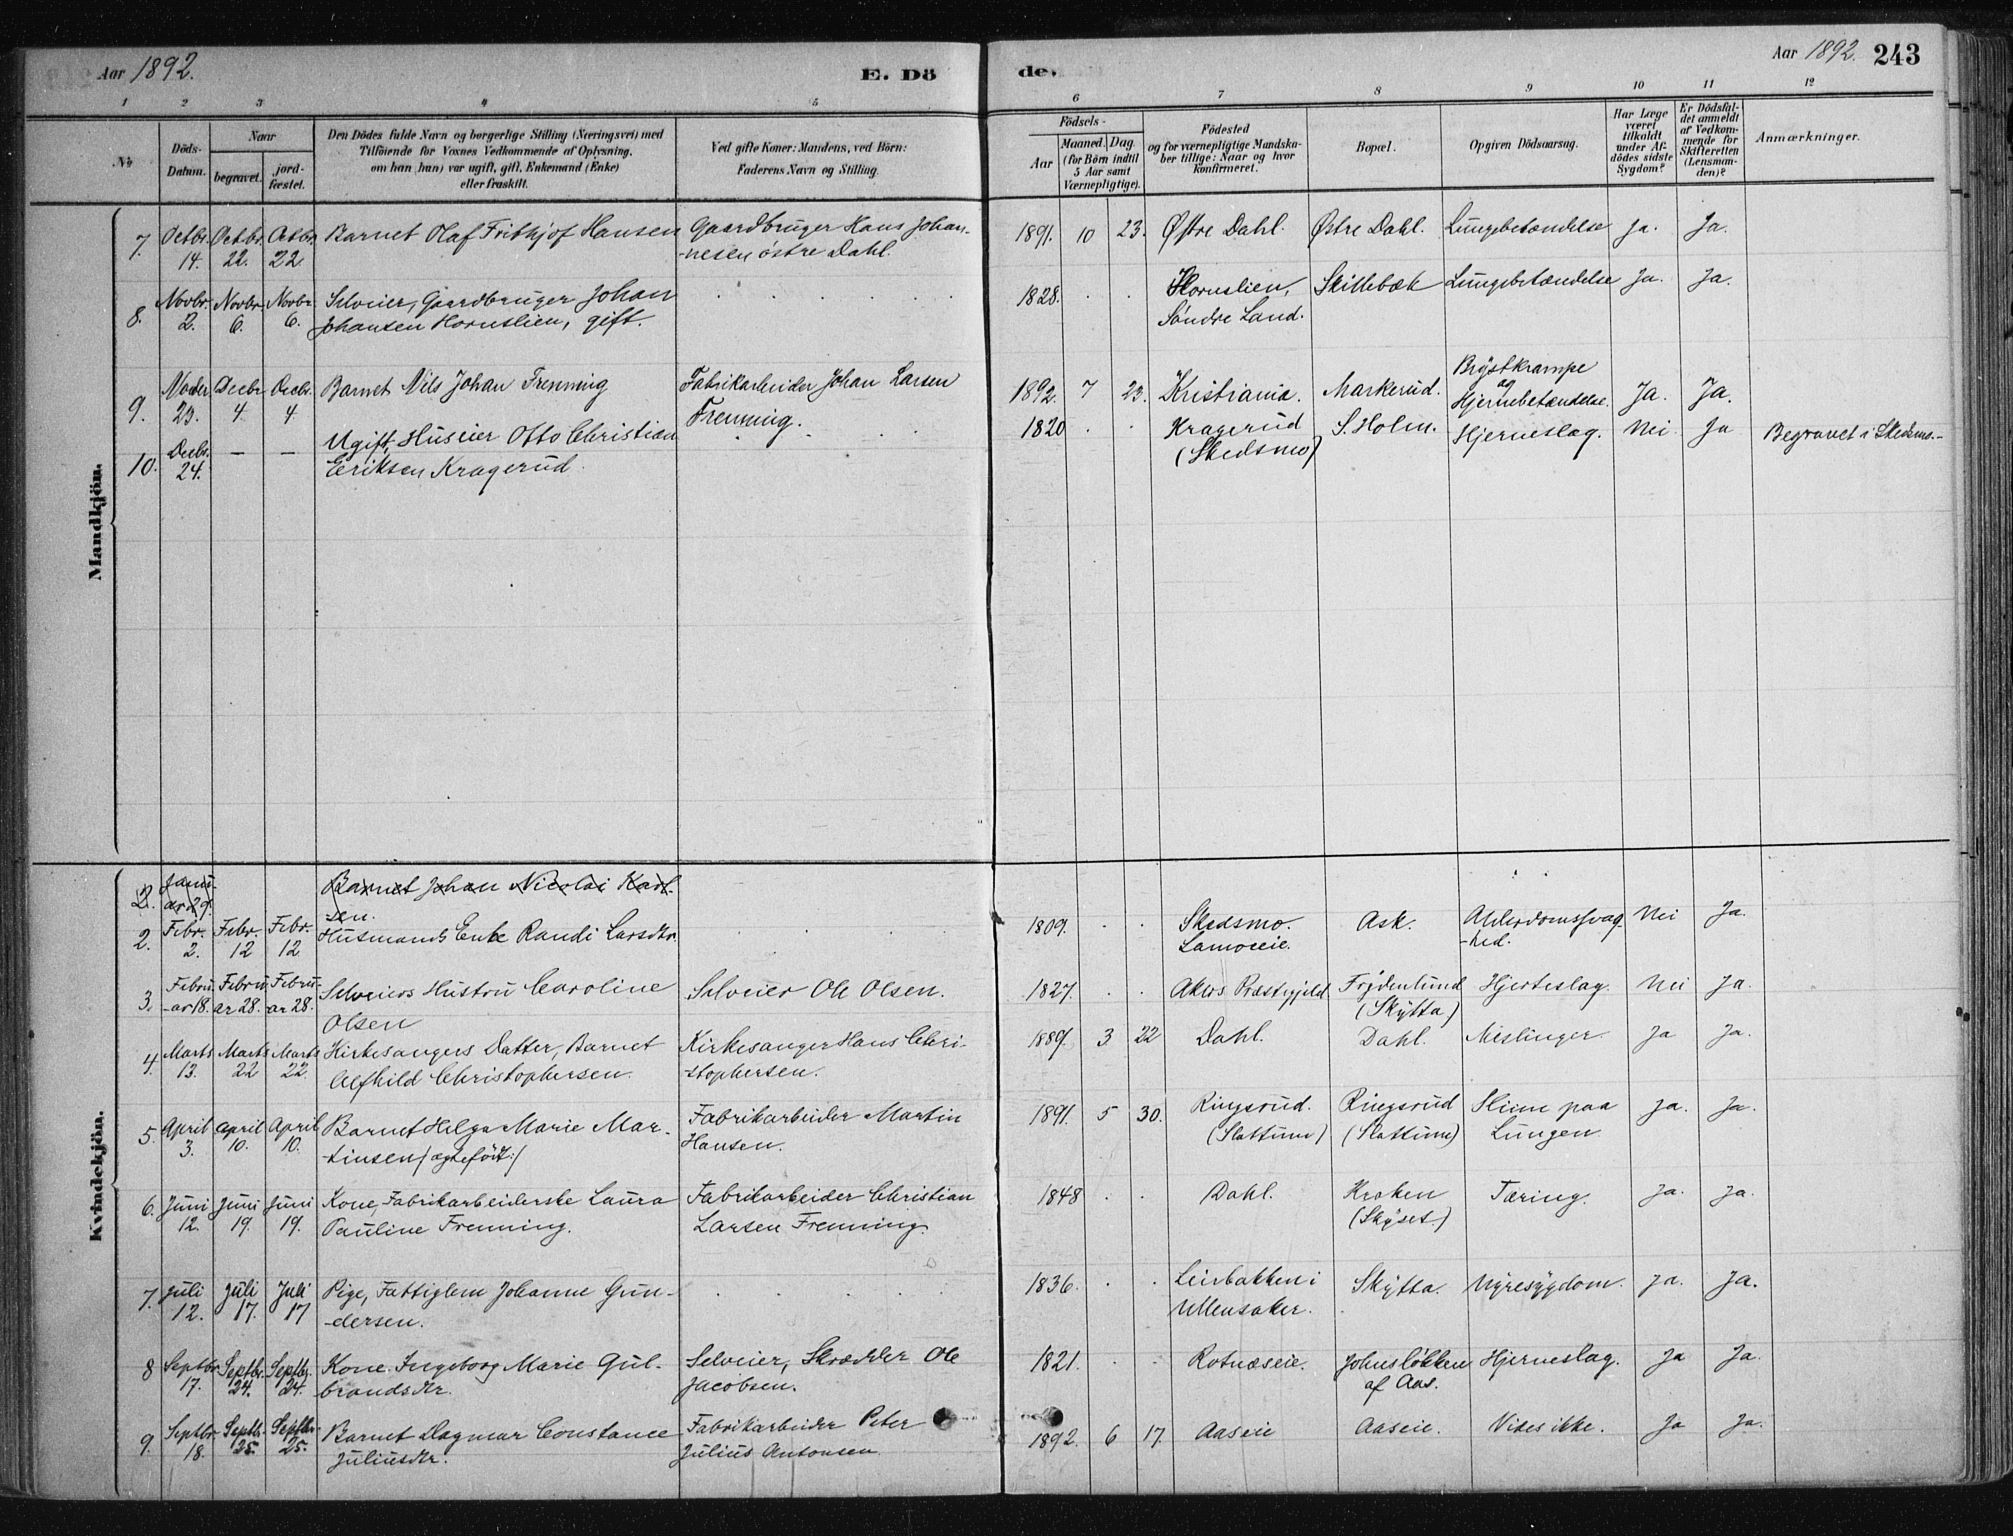 Aar 1892.
E. Dö
de.
Aar 1892. 243
1 2 3 4 5 6 7 8 9 10 11 12
No
Döds-
Datum.
Naar
begravet.
jord-
fæstet.
Den Dödes fulde Navn og borgerlige Stilling (Næringsvei) med
Tilföiende for Voxnes Vedkommende af Oplysning,
om han (hun) var ugift, gift, Enkemand (Enke)
eller fraskilt.
Ved gifte Koner: Mandens, ved Börn:
Faderens Navn og Stilling.
Födsels-
Aar
Maaned. Dag.
(for Börn indtil
5 Aar samt
Værnepligtige).
Födested
og for værnepligtige Mandska-
ber tillige: Naar og hvor
konfirmeret.
Bopæl.
Opgiven Dödsaarsag.
Har Læge
været
tilkaldt
under Af-
dödes sidste
Sygdom?
Er Dödsfal-
det anmeldt
af Vedkom-
mende for
Skifteretten
(Lensman-
den)?
Anmærkninger.
Mandkjön.
7. Octbr. 14. Octbr. 22. Octbr. 22. Barnet Olaf Frithjof Hansen Gaardbruger Hans Johan-
nesen östre Dahl. 1891. 10 23. Østre Dahl. Østre Dahl. Lungebetændelse ja. Ja.
8. Novbr. 2. Novbr. 6. Novbr. 6. Selveier, Gaardbruger Johan
Johansen Hornslien, gift. 1828. Hornslien,
Söndre Land. Skillebæk Lungebetændelse Ja. Ja.
9. 23. Decbr 4. Decbr. 4 Barnet Nils Johan Frenning Fabrikarbeider Johan Larsen
Frenning. 1892. 7 23. Kristiania. Markerud. Brystkrampe
og
Hjernebetændelse. Ja. Ja.
10. Decbr. 24. — — Ugift, Huseier Otto Christian
Eriksen Kragerud. 1820 Kragerud
(Skedsmo) S. Holm. Hjerneslag. Nei Ja Begravet i Skedsmo.-
Kvindekjön.
2. Janu-
ar 29. Barnet Johan Nicolai Karl-
sen.
2. Febr. 2. Febr. 12 Febr. 12 Husmands Enke Randi Larsdtr. 1809. Skedsmo.
Ask. Alderdomssvag-
hed. Nei Ja.
3. Febru-
ar 18. Febru
ar 28. Febru-
ar 28. Selveiers Hustru Caroline
Olsen Selveier Ole Olsen. 1827. Akers Præstegjeld Frydenlund
(Skytta) Hjerteslag. Nei Ja.
4. Marts 13. Marts 22 Marts 22. Kirkesangers Datter, Barnet
Alfhild Christophersen. Kirkesanger Hans Chri-
stophersen. 1889. 3 22 Dahl. Dahl. Meslinger. ja Ja.
5. April 3. April 10. April 10. Barnet Helga Marie Mar-
tinsen (ægtefödt:/ Fabrikarbeider Martin
Hansen. 1891. 5 30. Ringsrud.
(Slattum) Ringsrud
(Slattum) Sliim paa
Lungen ja. Ja.
6. Juni 12. Juni 19. Juni 19. Kone, Fabrikarbeiderske Laura
Pauline Frenning. Fabrikarbeider Christian
Larsen Frenning. 1848 Dahl. Kroken
(Skyset.) Tæring. ja. ja.
7. Juli 12. Juli 17. Juli 17 Pige, Fattiglem Johanne Gun-
dersen. 1836. Leirbakken i
Ullensaker. Skytta. Nyresygdom. ja. Ja.
8 Septbr. 17. Septbr. 24. Septbr. 24. Kone Ingeborg Marie Gul-
brandsdtr. Selveier, Skrædder Ole
Jacobsen. 1821. Rotnæseie. Johnslökken
af Aas. Hjerneslag. Ja Ja.
9. Septbr. 18. Septbr. 25. Septbr. 25. Barnet Dagmar Constance
Juliusdtr. Fabrikarbeider Peter
Julius Antonsen 1892. 6 17. Aaseie Aaseie. Vides ikke. Ja Ja.